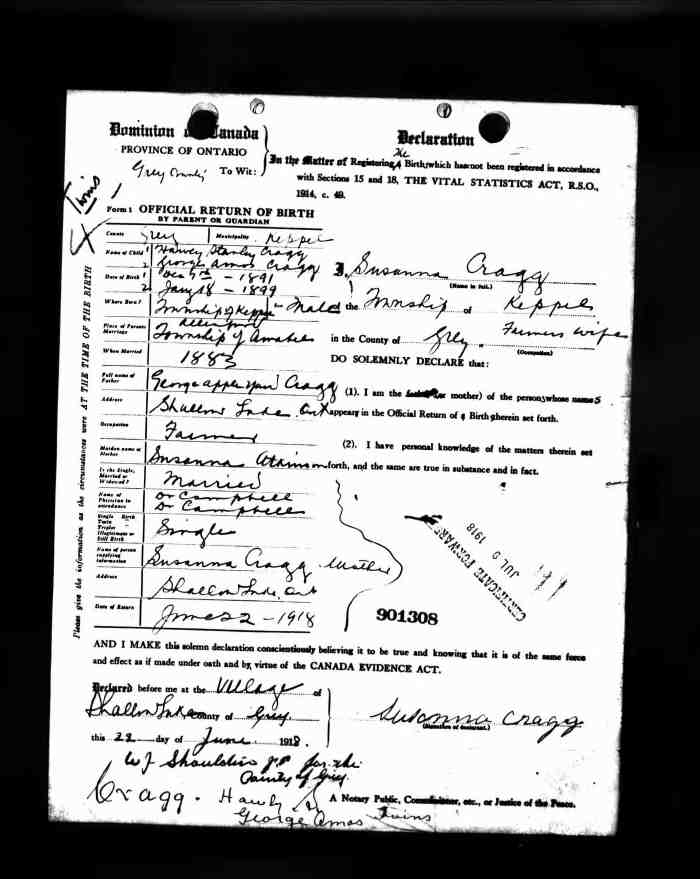 Dominion of Canada
PROVINCE OF ONTARIO
Grey County To Wit:
Declaration
In the Matter of Registering the Birth, which has not been registered in accordance
with Sections 15 and 18, THE VITAL STATISTICS ACT, R.S.O.,
1914, c. 49.
Twins
Form 1 OFFICIAL RETURN OF BIRTH
BY PARENT OR GUARDIAN
Please give the information as the circumstances were AT THE TIME OF THE BIRTH
County Grey Municipality Keppel
Name of Child 1 Harvey Stanley Cragg
2 George Amos Cragg
Date of Birth 1 Dec 9th - 1891
2 Jany 18 - 1899
Where Born? Township of Keppel
Place of Parents Marriage Township of Amabel
When Married 1883
Full name of Father George Cragg
Address Shallow Lake Ont
Occupation Farmer
Maiden name of Mother Susanna Atkinson
Is the Single, Married or Widowed? Married
Name of Physician in attendance Dr Campbell
Dr Campbell
Single Birth Twin Triplet Illegitimate or Still Birth Single
Name of person supplying information Susanna Cragg Mother
Address Shallow Lake Ont
Date of Return June 22 - 1918
I, Susanna Cragg
(Name in full.)
of the Township of Keppel
in the County of Grey, Farmers wife
(Occupation)
DO SOLEMNLY DECLARE that:
(1). I am the mother) of the persons whose names
appear in the Official Return of Birth herein set forth.
(2). I have personal knowledge of the matters therein set
forth, and the same are true in substance and in fact.
CERTIFICATE FORWARDED
JUL 5 1918
901308
AND I MAKE this solemn declaration conscientiously believing it to be true and knowing that it is of the same force
and effect as if made under oath and by virtue of the CANADA EVIDENCE ACT.
Declared before me at the Village of
Shallow Lake County of Grey
this 22 day of June 1918.
Susanna Cragg
(Signature of declarant.)
W J Shouldis J.P. for the
County of Grey
A Notary Public, Commissioner, etc., or Justice of the Peace.
Cragg.
George Amos Twins